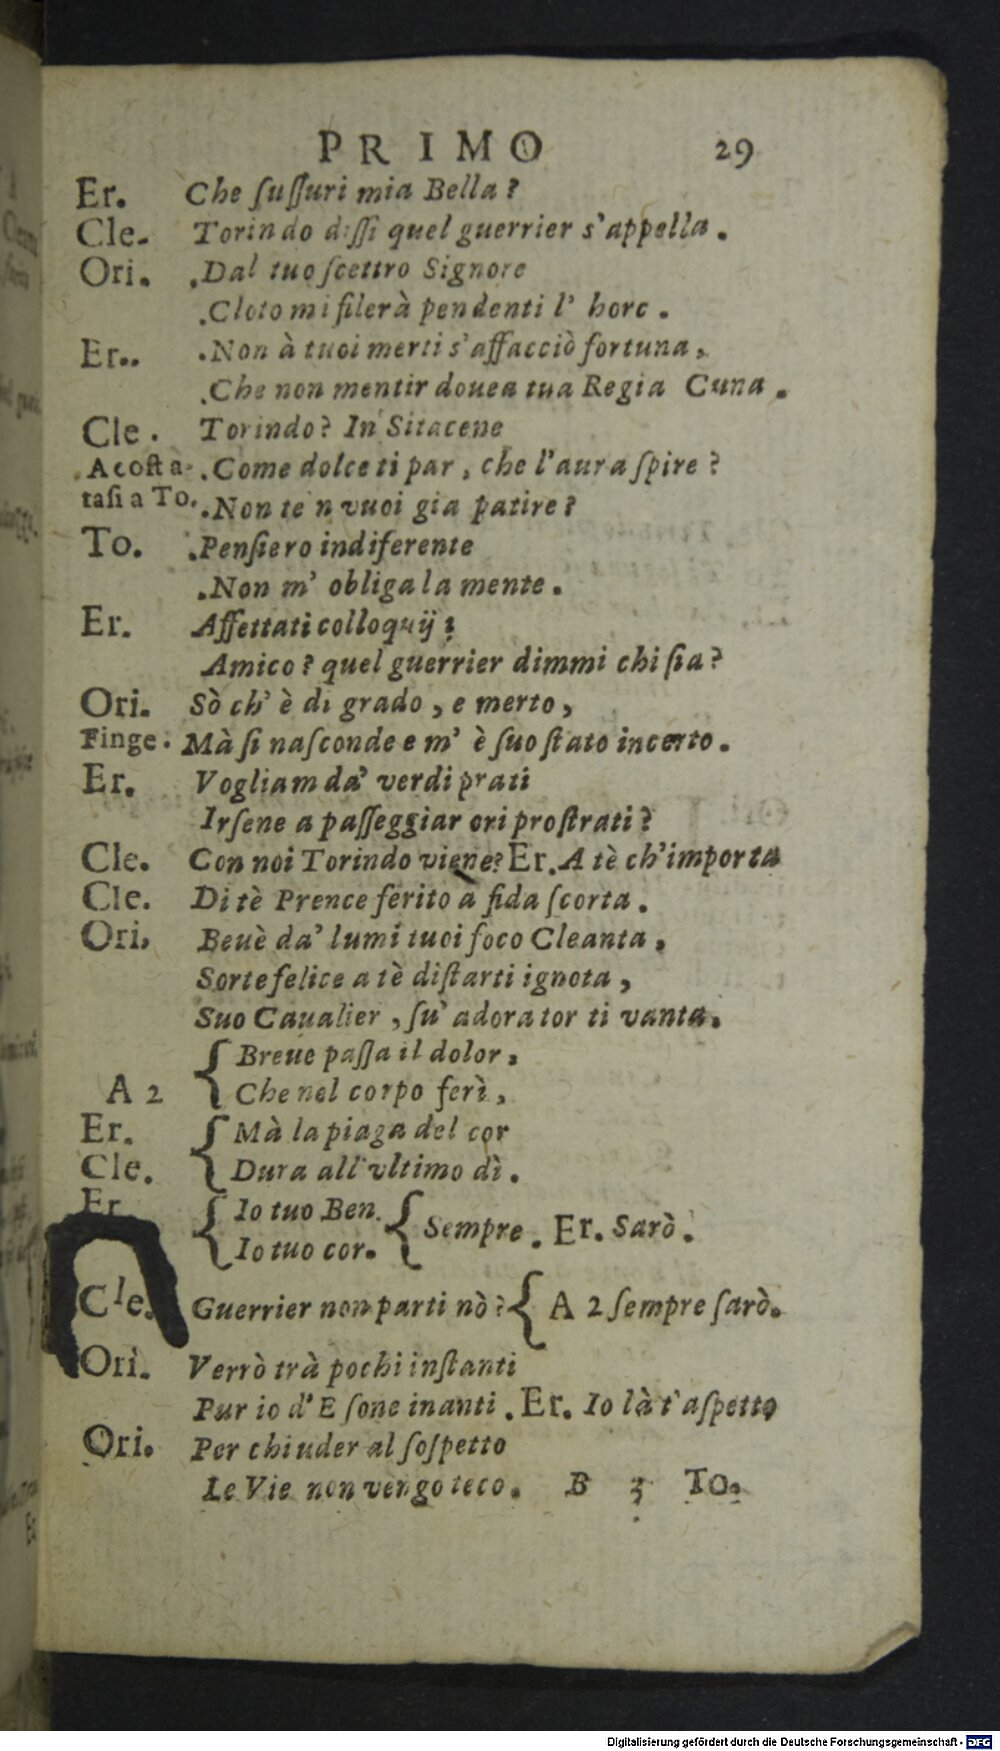 PRIMO 29
Er. Che ſuſſuri mia Bella?
Cle. Torindo diſſi quel guerrier s'appella.
Ori. Dal tuo ſcettro Signore
Cloto mi filerà pendenti l' hore.
Er.. Non à tuoi merti s'affacciò fortuna,
Che non mentir douea tua Regia Cuna.
Cle. Torindo? In Sitacene
Acoſta- Come dolce ti par, che l'aura ſpire?
taſi a To. Non te'n vuoi gia patire?
To. Penſiero indiferente
Non m' obliga la mente.
Er. Affettati colloquij?
Amico? quel guerrier dimmi chi ſia?
Ori. Sò ch' è di grado, e merto,
Finge. Mà ſi naſconde e m' è ſuo ſtato incerto.
Er. Vogliam da' verdi prati
Irſene a paſſeggiar ori proſtrati?
Cle. Con noi Torindo viene? Er. A tè ch'importa
Cle. Di tè Prence ferito à fida ſcorta.
Ori. Beuè da' lumi tuoi foco Cleanta,
Sorte felice a tè diſtarti ignota,
Suo Caualier, ſu' adorator ti vanta.
{ Breue paſſa il dolor,
A 2 { Che nel corpo ferì,
Er. { Mà la piaga del cor
Cle. { Dura all'vltimo dì.
Er. { Io tuo Ben. { Sempre. Er. Sarò.
{ Io tuo cor.
Cle. Guerrier non parti nò? { A 2 ſempre ſarò.
Ori. Verrò trà pochi inſtanti
Pur io d' Eſone inanti. Er. Io là t'aſpetto
Ori. Per chiuder al ſoſpetto
Le Vie non vengo teco. B 3 To.
Digitalisierung gefördert durch die Deutsche Forschungsgemeinschaft - DFG